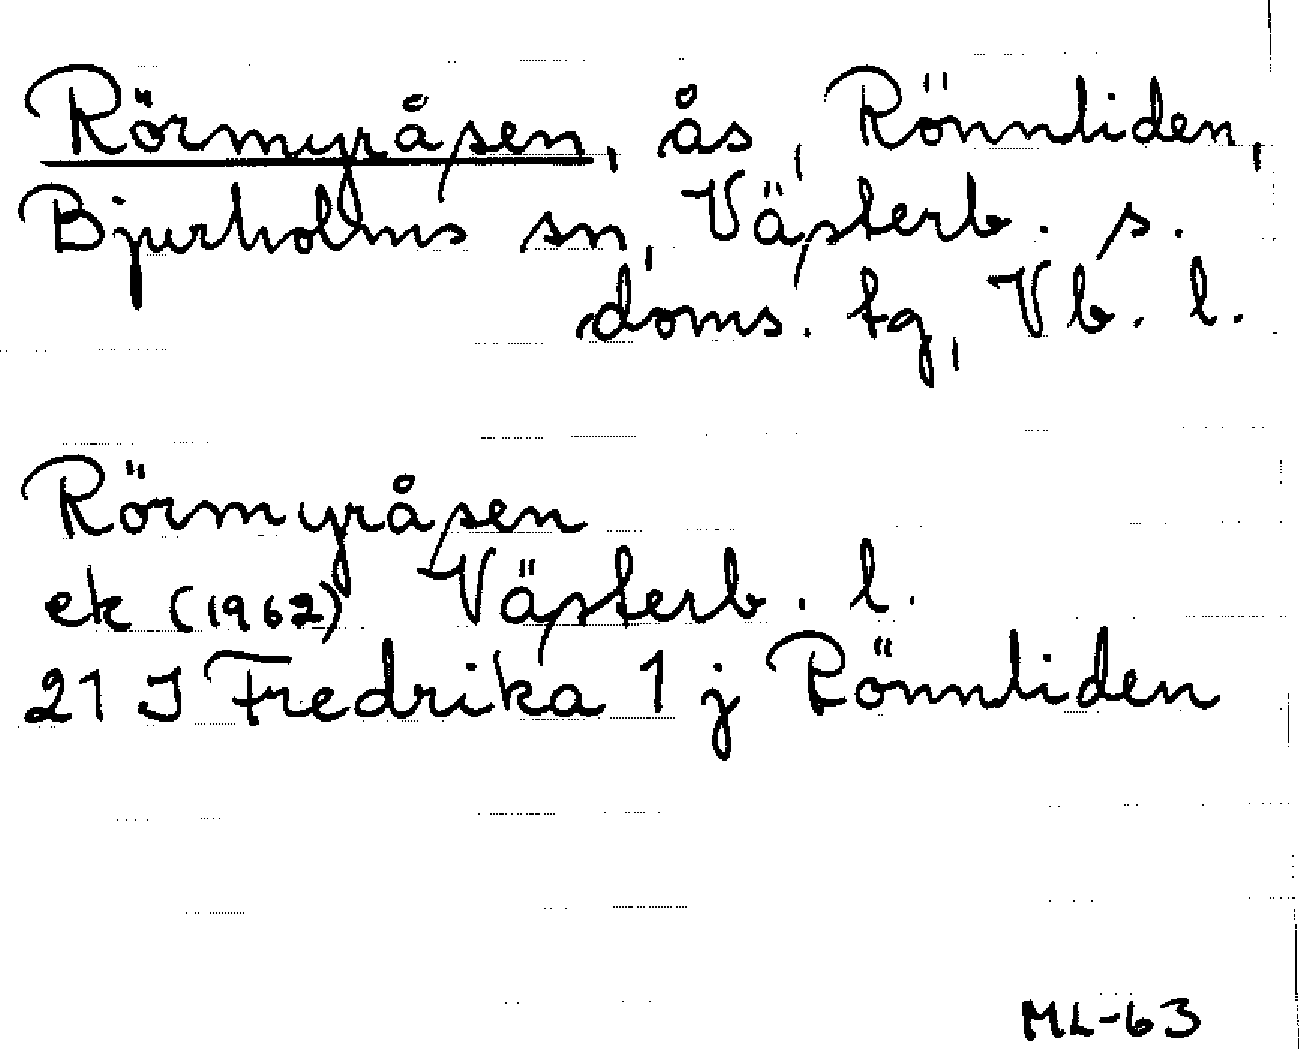 Rörmyråsen, ås, Rönnliden,
Bjurholms sn, Västerb. s.
doms. tg, Vb. l.
Rörmyråsen
ek (1962) Västerb. l.
21 J Fredrika 1 j Rönnliden
ML-63